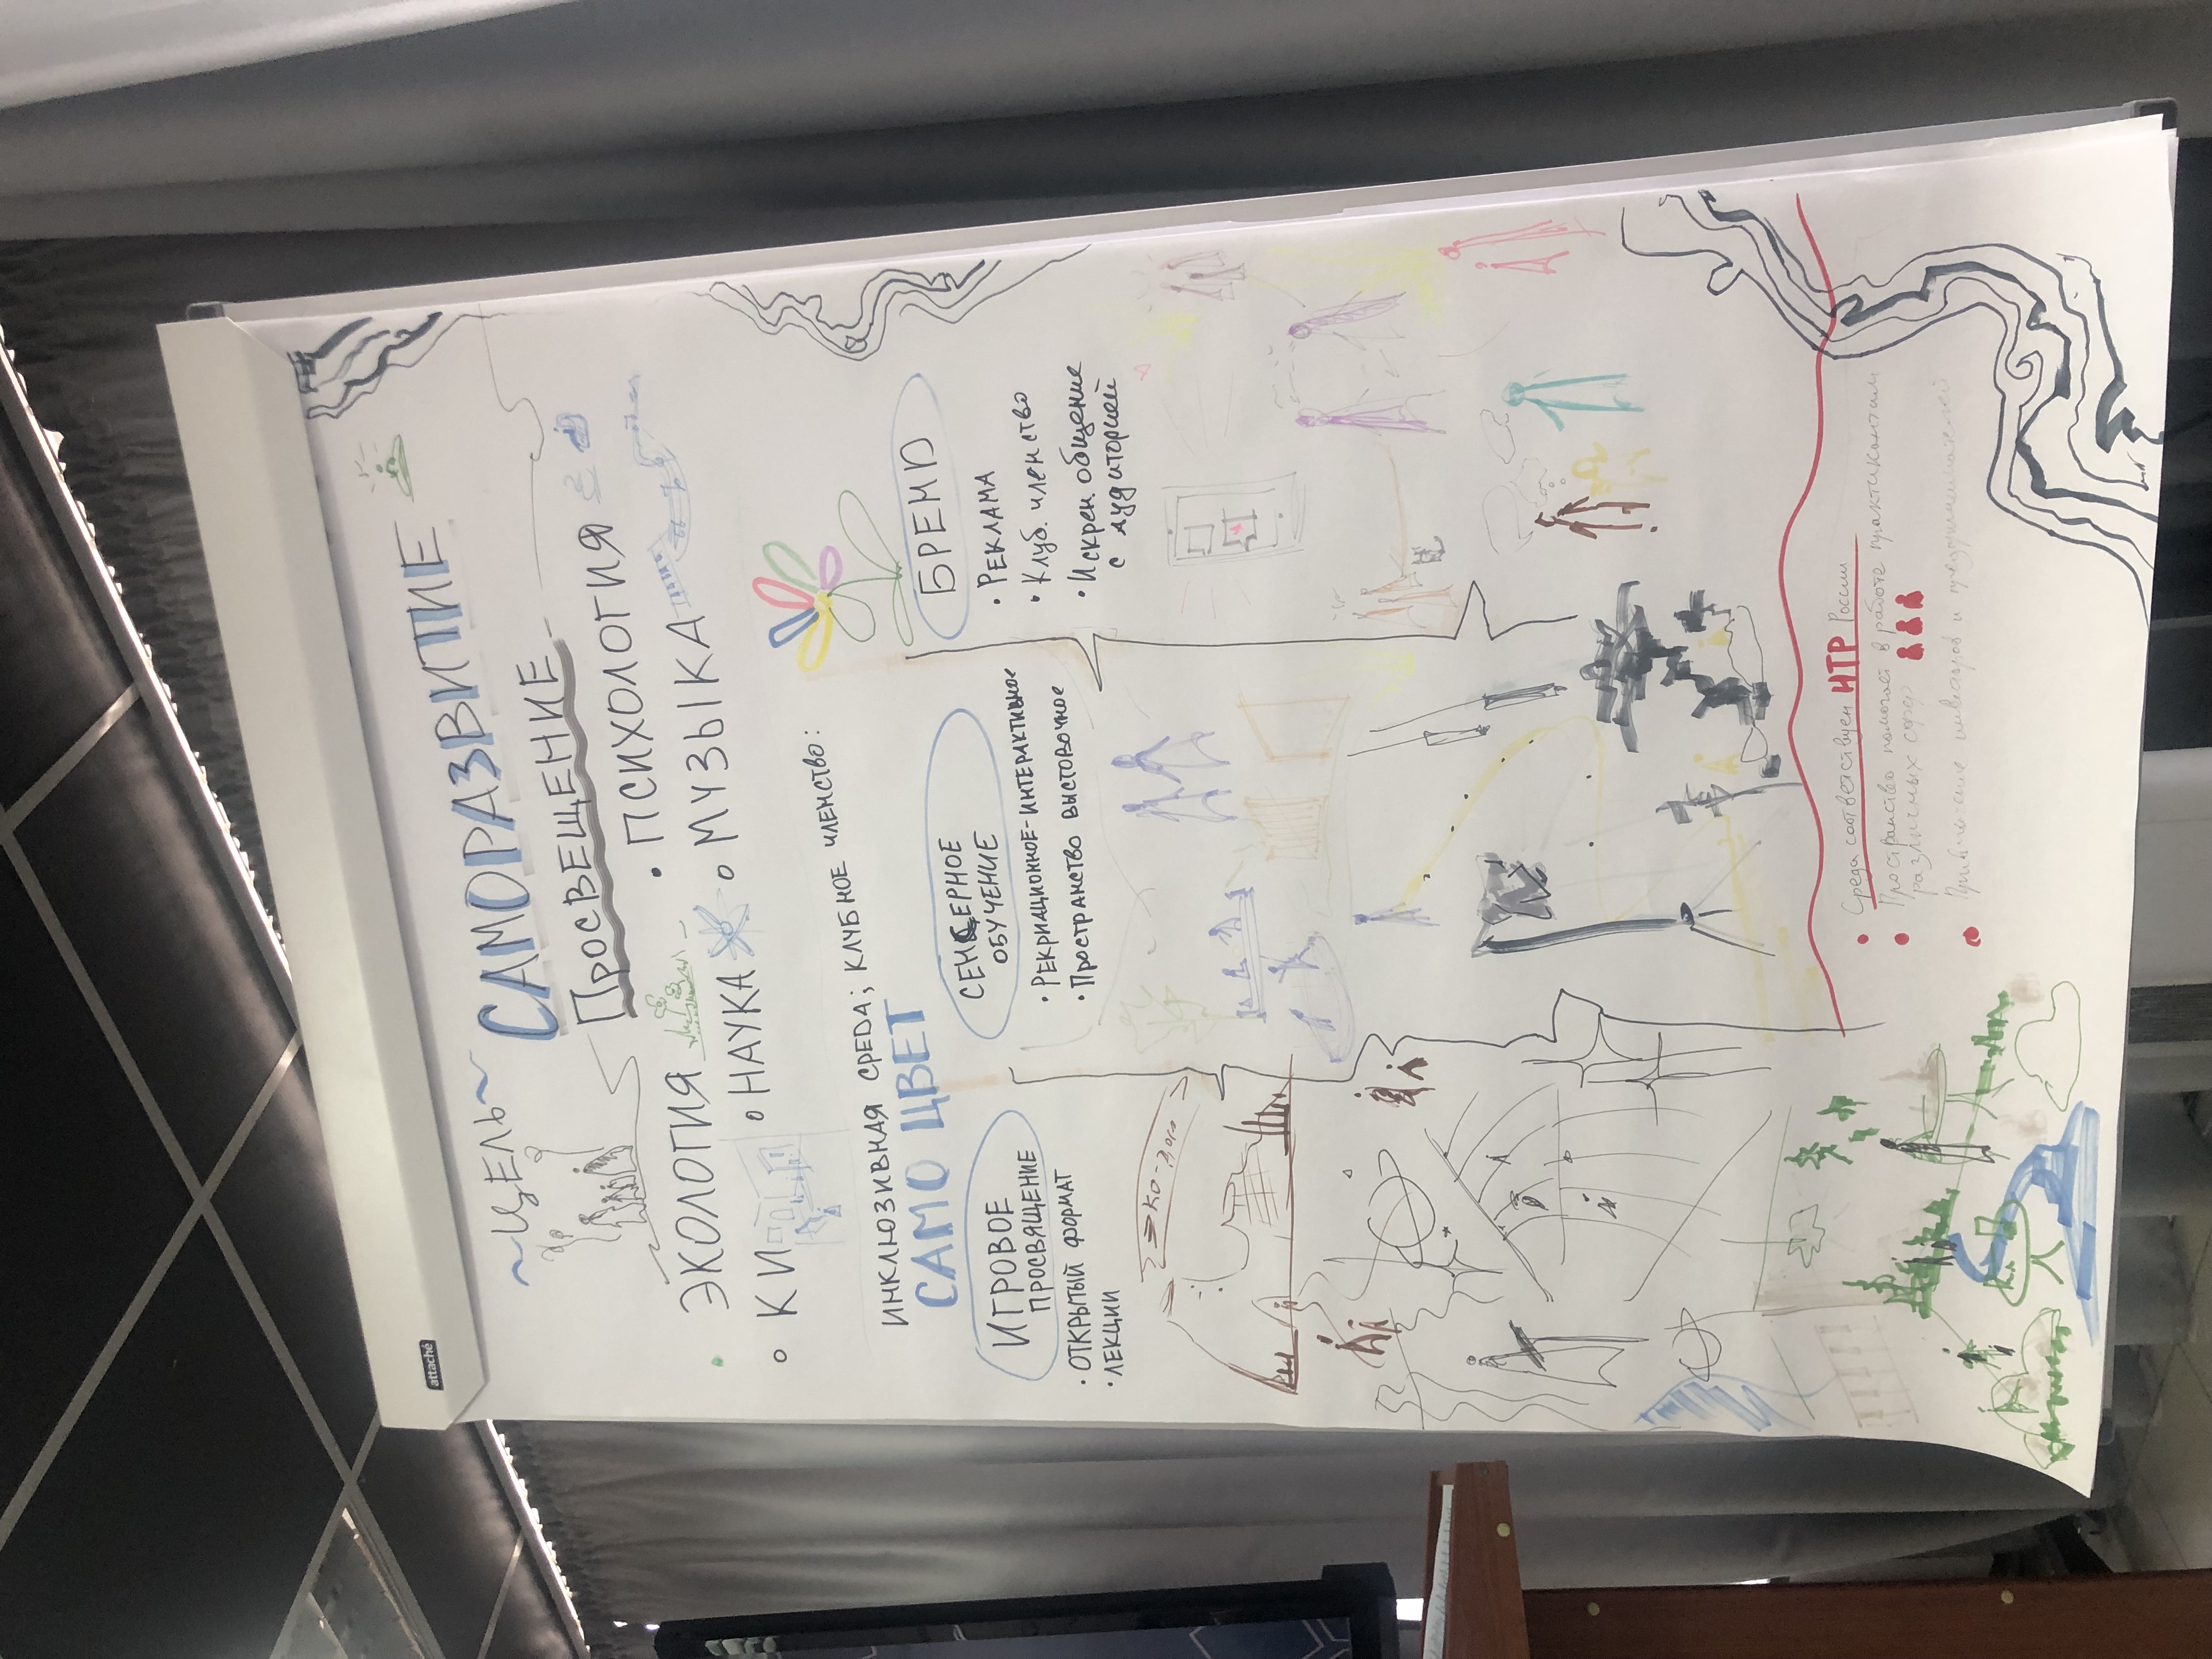 attaché
~ЦЕЛЬ~ САМОРАЗВИТИЕ
ПРОСВЕЩЕНИЕ
• ЭКОЛОГИЯ • ПСИХОЛОГИЯ
• КИ • НАУКА • МУЗЫКА
ИНКЛЮЗИВНАЯ СРЕДА; КЛУБНОЕ ЧЛЕНСТВО:
САМО ЦВЕТ
ИГРОВОЕ
ПРОСВЯЩЕНИЕ
• ОТКРЫТЫЙ ФОРМАТ
• ЛЕКЦИИ
СЕНСЕРНОЕ
ОБУЧЕНИЕ
• РЕКРИАЦИОННОЕ-ИНТЕРАКТИВНОЕ
• ПРОСТРАНСТВО ВЫСТОВОЧНОЕ
БРЕНD
• РЕКЛАМА
• Клуб. членство
• Искрен. общение
с аудиторией
ЭКО-
• Среда соответствует НТР России
• Пространство помогает в работе
различных сфер
• и предпринимателей